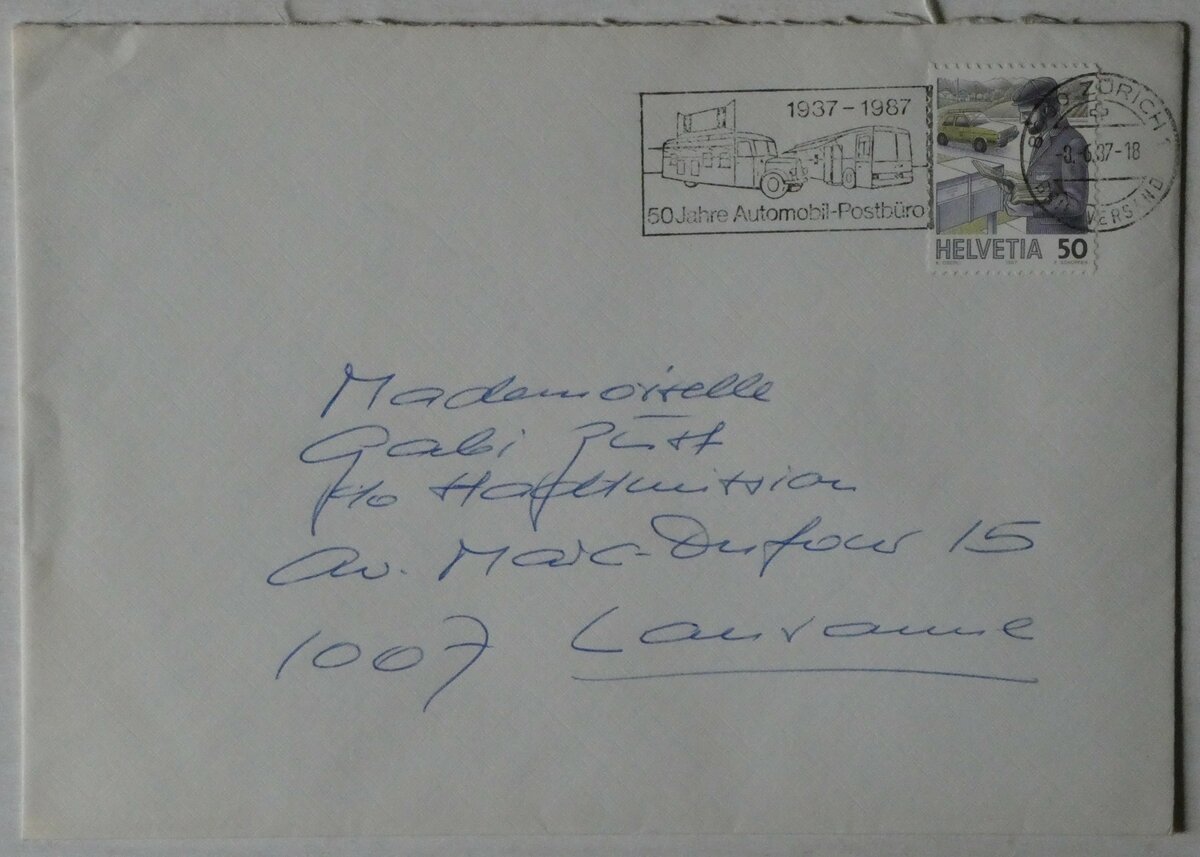 1937 - 1987
50 Jahre Automobil-Postbüro
ZÜRICH
-6.87-18
HELVETIA 50
Mademoiselle
Gabi Züst
c/o Stadtmission
Av. Marc-Dufour 15
1007 Lausanne